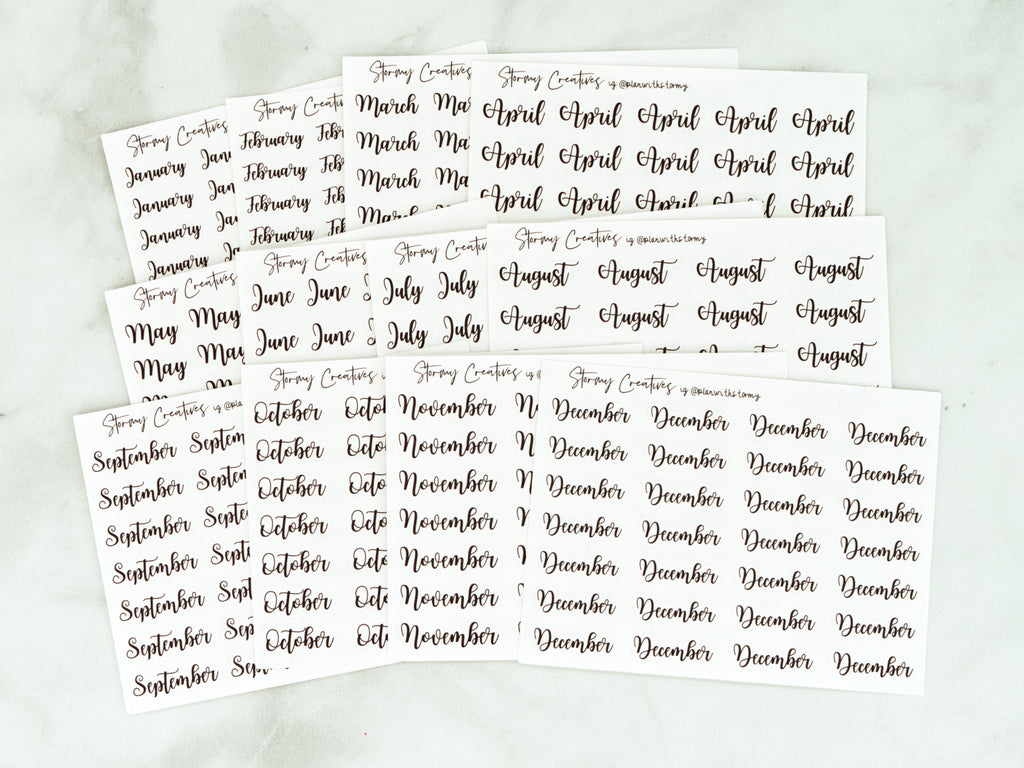 Stormy Creatives
January Janu
January Jan
January Ja
January
Stormy Creativ
February Febr
February Feb
February Feb
February Feb
Stormy Creatives
March Ma
March Ma
March Ma
March
Stormy Creatives ig @planwithstormy
April April April April April
April April April April April
April April April April April
Stormy Creatives
May May
May May
Stormy Creatives
June June
June June
Stormy Creatives
July July
July July
Stormy Creatives ig @planwithstormy
August August August August
August August August August
August
Stormy Creatives ig @pla
September Septem
September Septem
September Septe
September Septe
September Sept
September Sep
September Sep
Stormy Creatives
October Octob
October Octo
October Octo
October Octo
October Octo
October Octo
October Octo
Stormy Creatives ig @
November N
November N
November N
November N
November N
November
November
Stormy Creatives ig @planwithstormy
December December December December
December December December December
December December December December
December December December December
December December December December
December December December December
December December December December